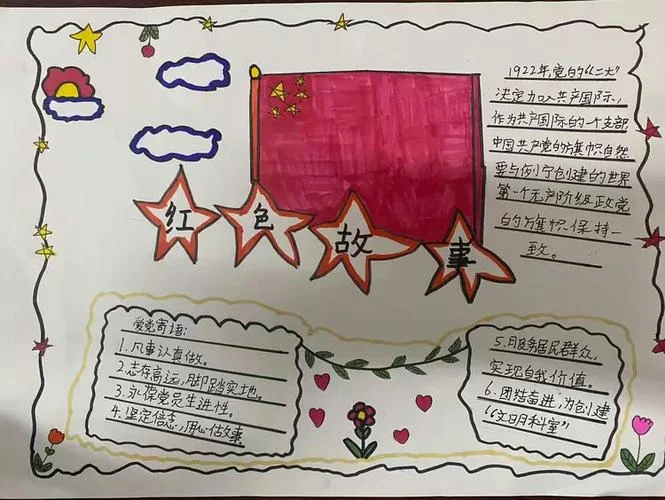 红色故事
1922年党的“二大”
决定加入共产国际,
作为共产国际的一个支部
中国共产党的旗帜自然
要与列宁创建的世界
第一个无产阶级政党
的旗帜保持一
致。
爱党寄语:
1.凡事认真做。
2.志存高远,脚踏实地。
3.永保党员先进性。
4.坚定信念,用心做事
5.服务居民群众,
实现自我价值。
6.团结奋进,为创建
“文明科室”